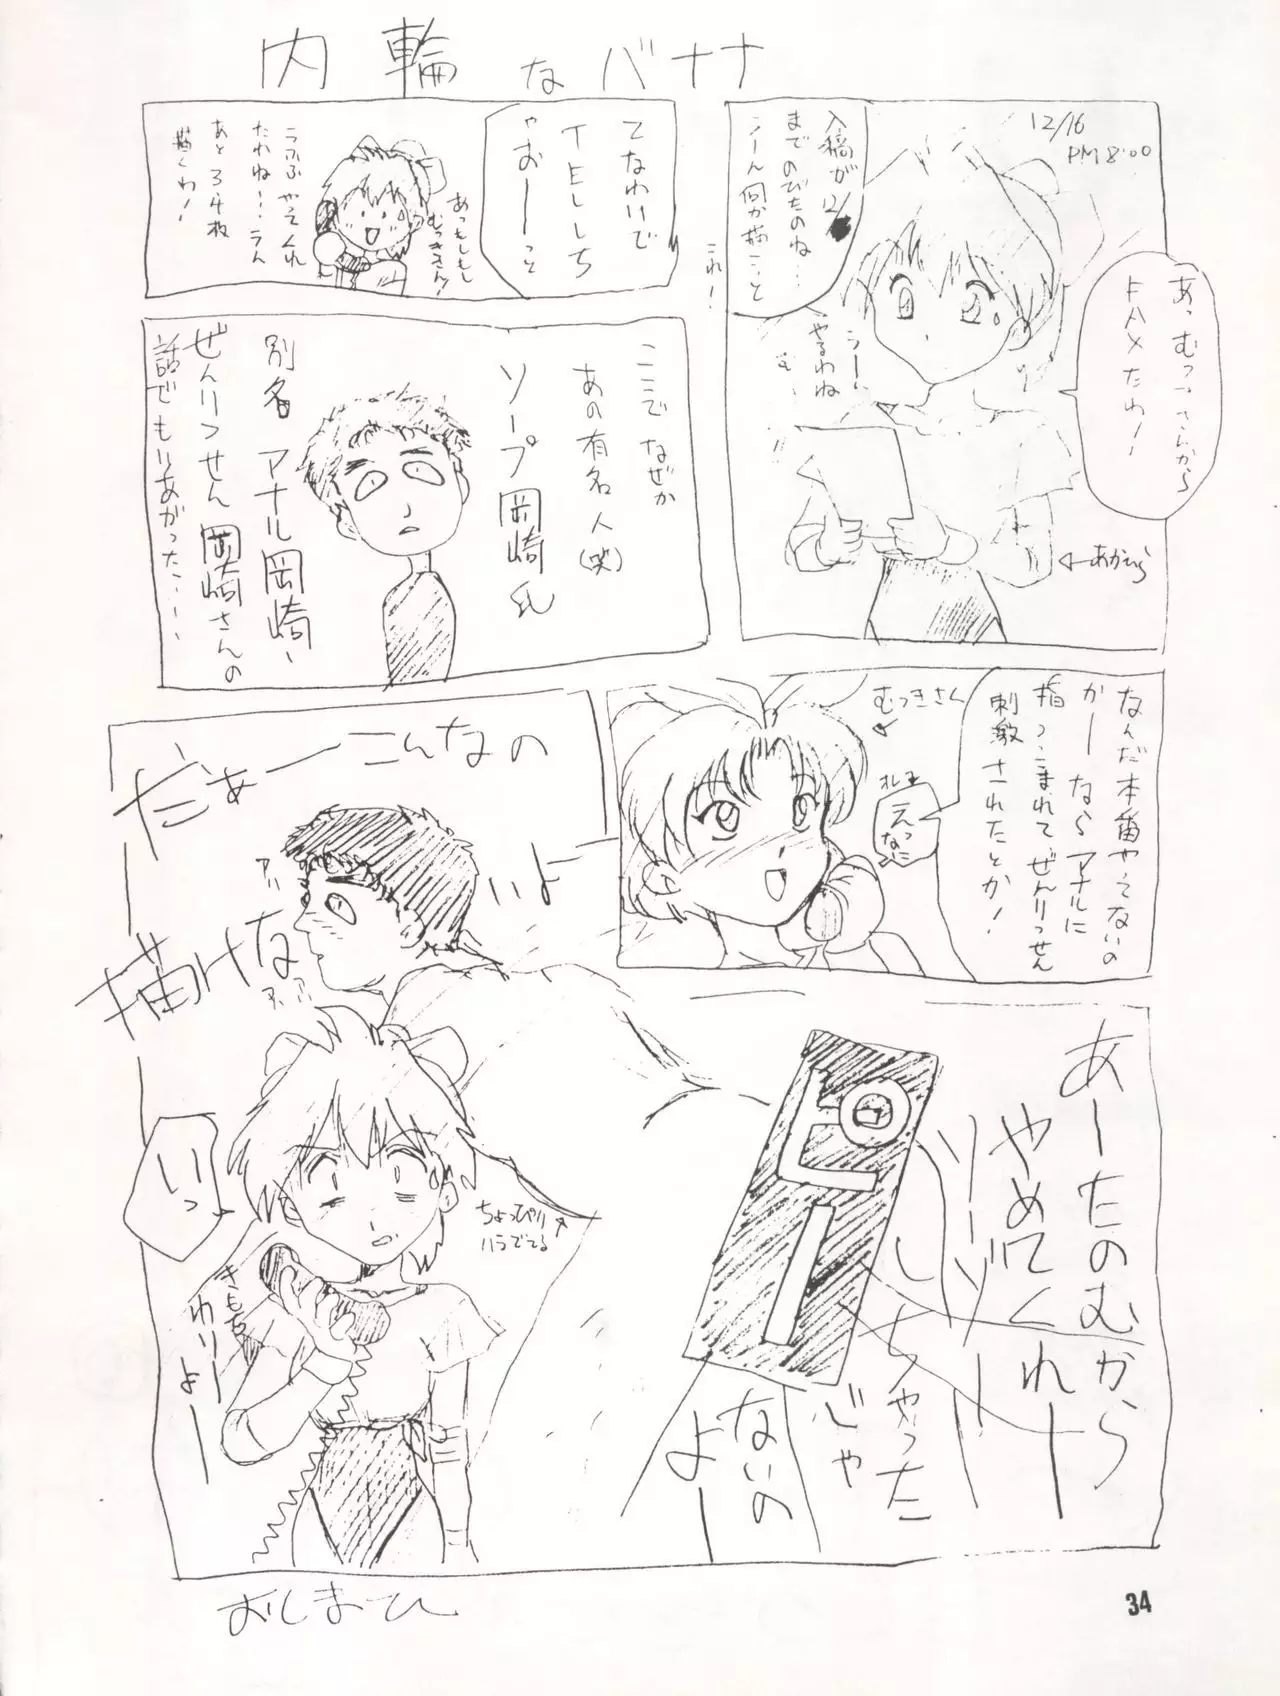 内輪なバナナ
12/16
PM 8:00
あっむつきさんから
FAXだわ!
入稿が12/
までのびたのね…
うーん何か描こっと
うーん
やるわね
む…
これ!
←あかむら
てなわけで
TELしち
ゃおーっと
あっもしもし
むつきさん!
うふふやってくれ
たわね…うん
あと34枚
描くわ!
ここでなぜか
あの有名人(笑)
ソープ岡崎氏
別名 アナル岡崎、
ぜんりつせん岡崎さんの
話でもりあがった……
なんだ本番やってないの
かーならアナルに
指つっこまれてぜんりつせん
刺激されたとか!
むつきさん
えっ
なに
こんなの
だぁー
描けな
いよー
あーたのむから
やめてくれー
しちゃった
じゃ
ないの
よー
ちょっぴり
ハラでてる
いっ
きもち
わりー
よー
おしまひ
34